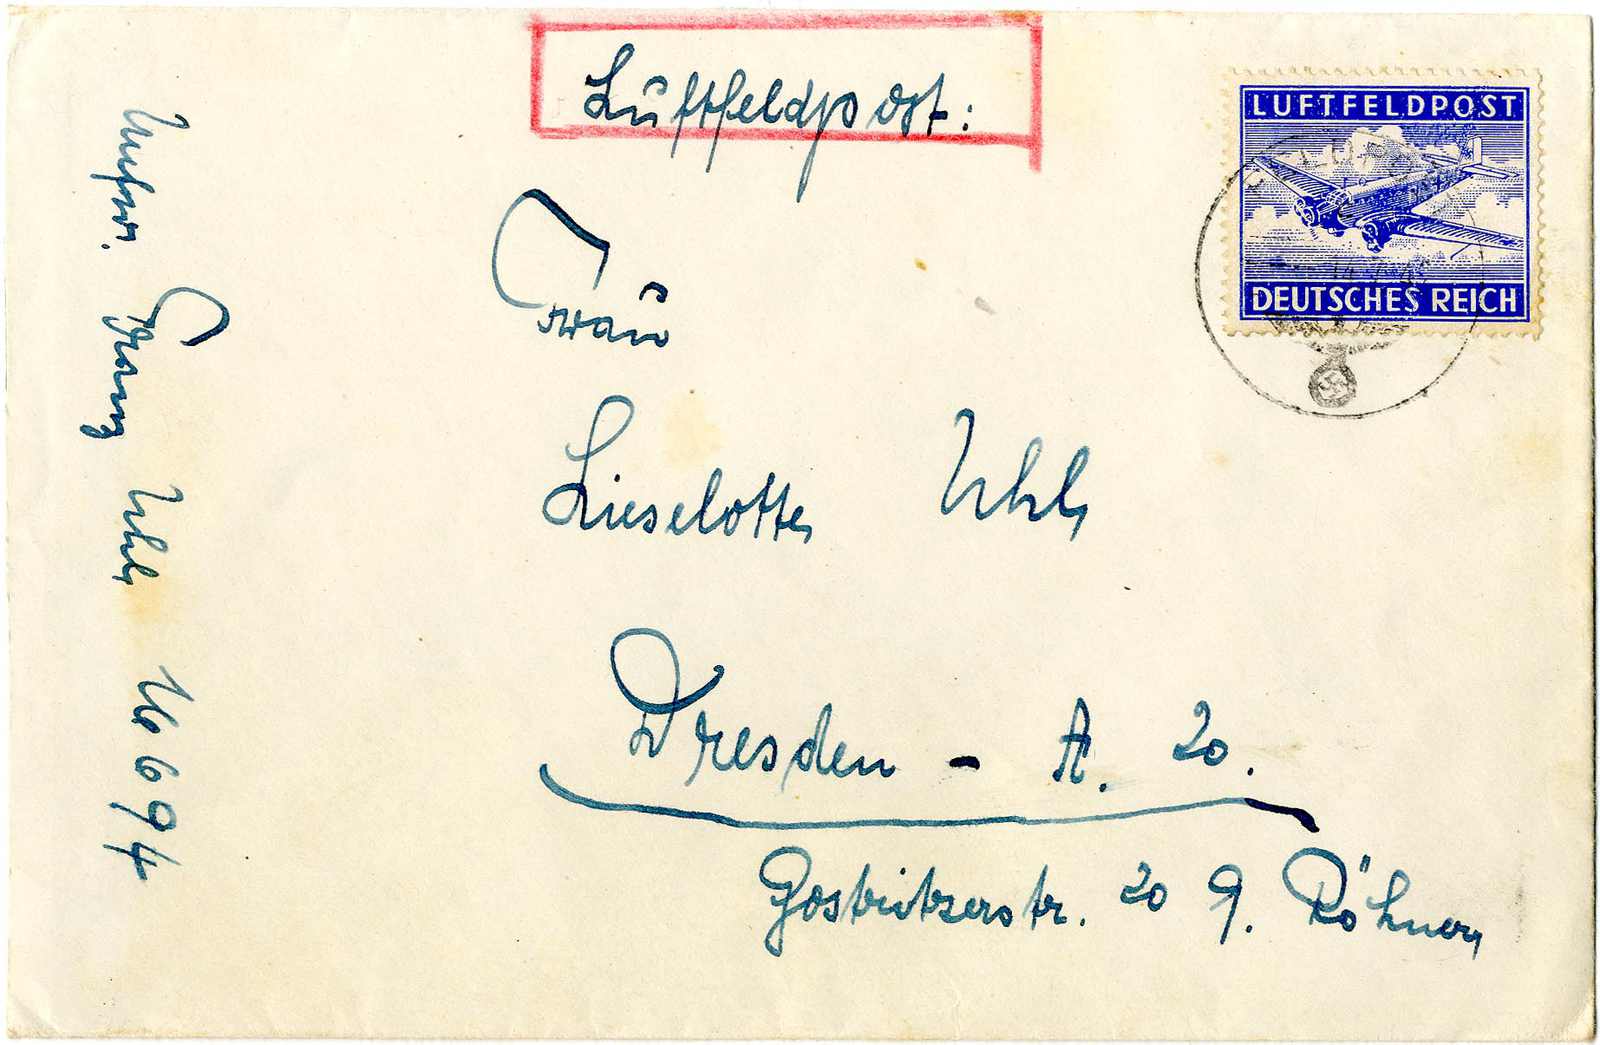 Luftfeldpost:
LUFTFELDPOST
DEUTSCHES REICH
Frau
Lieselotte Uhl
Dresden - A. 20.
Gostritzerstr. 20 g. Röhner
Uffw. Franz Uhl 16694